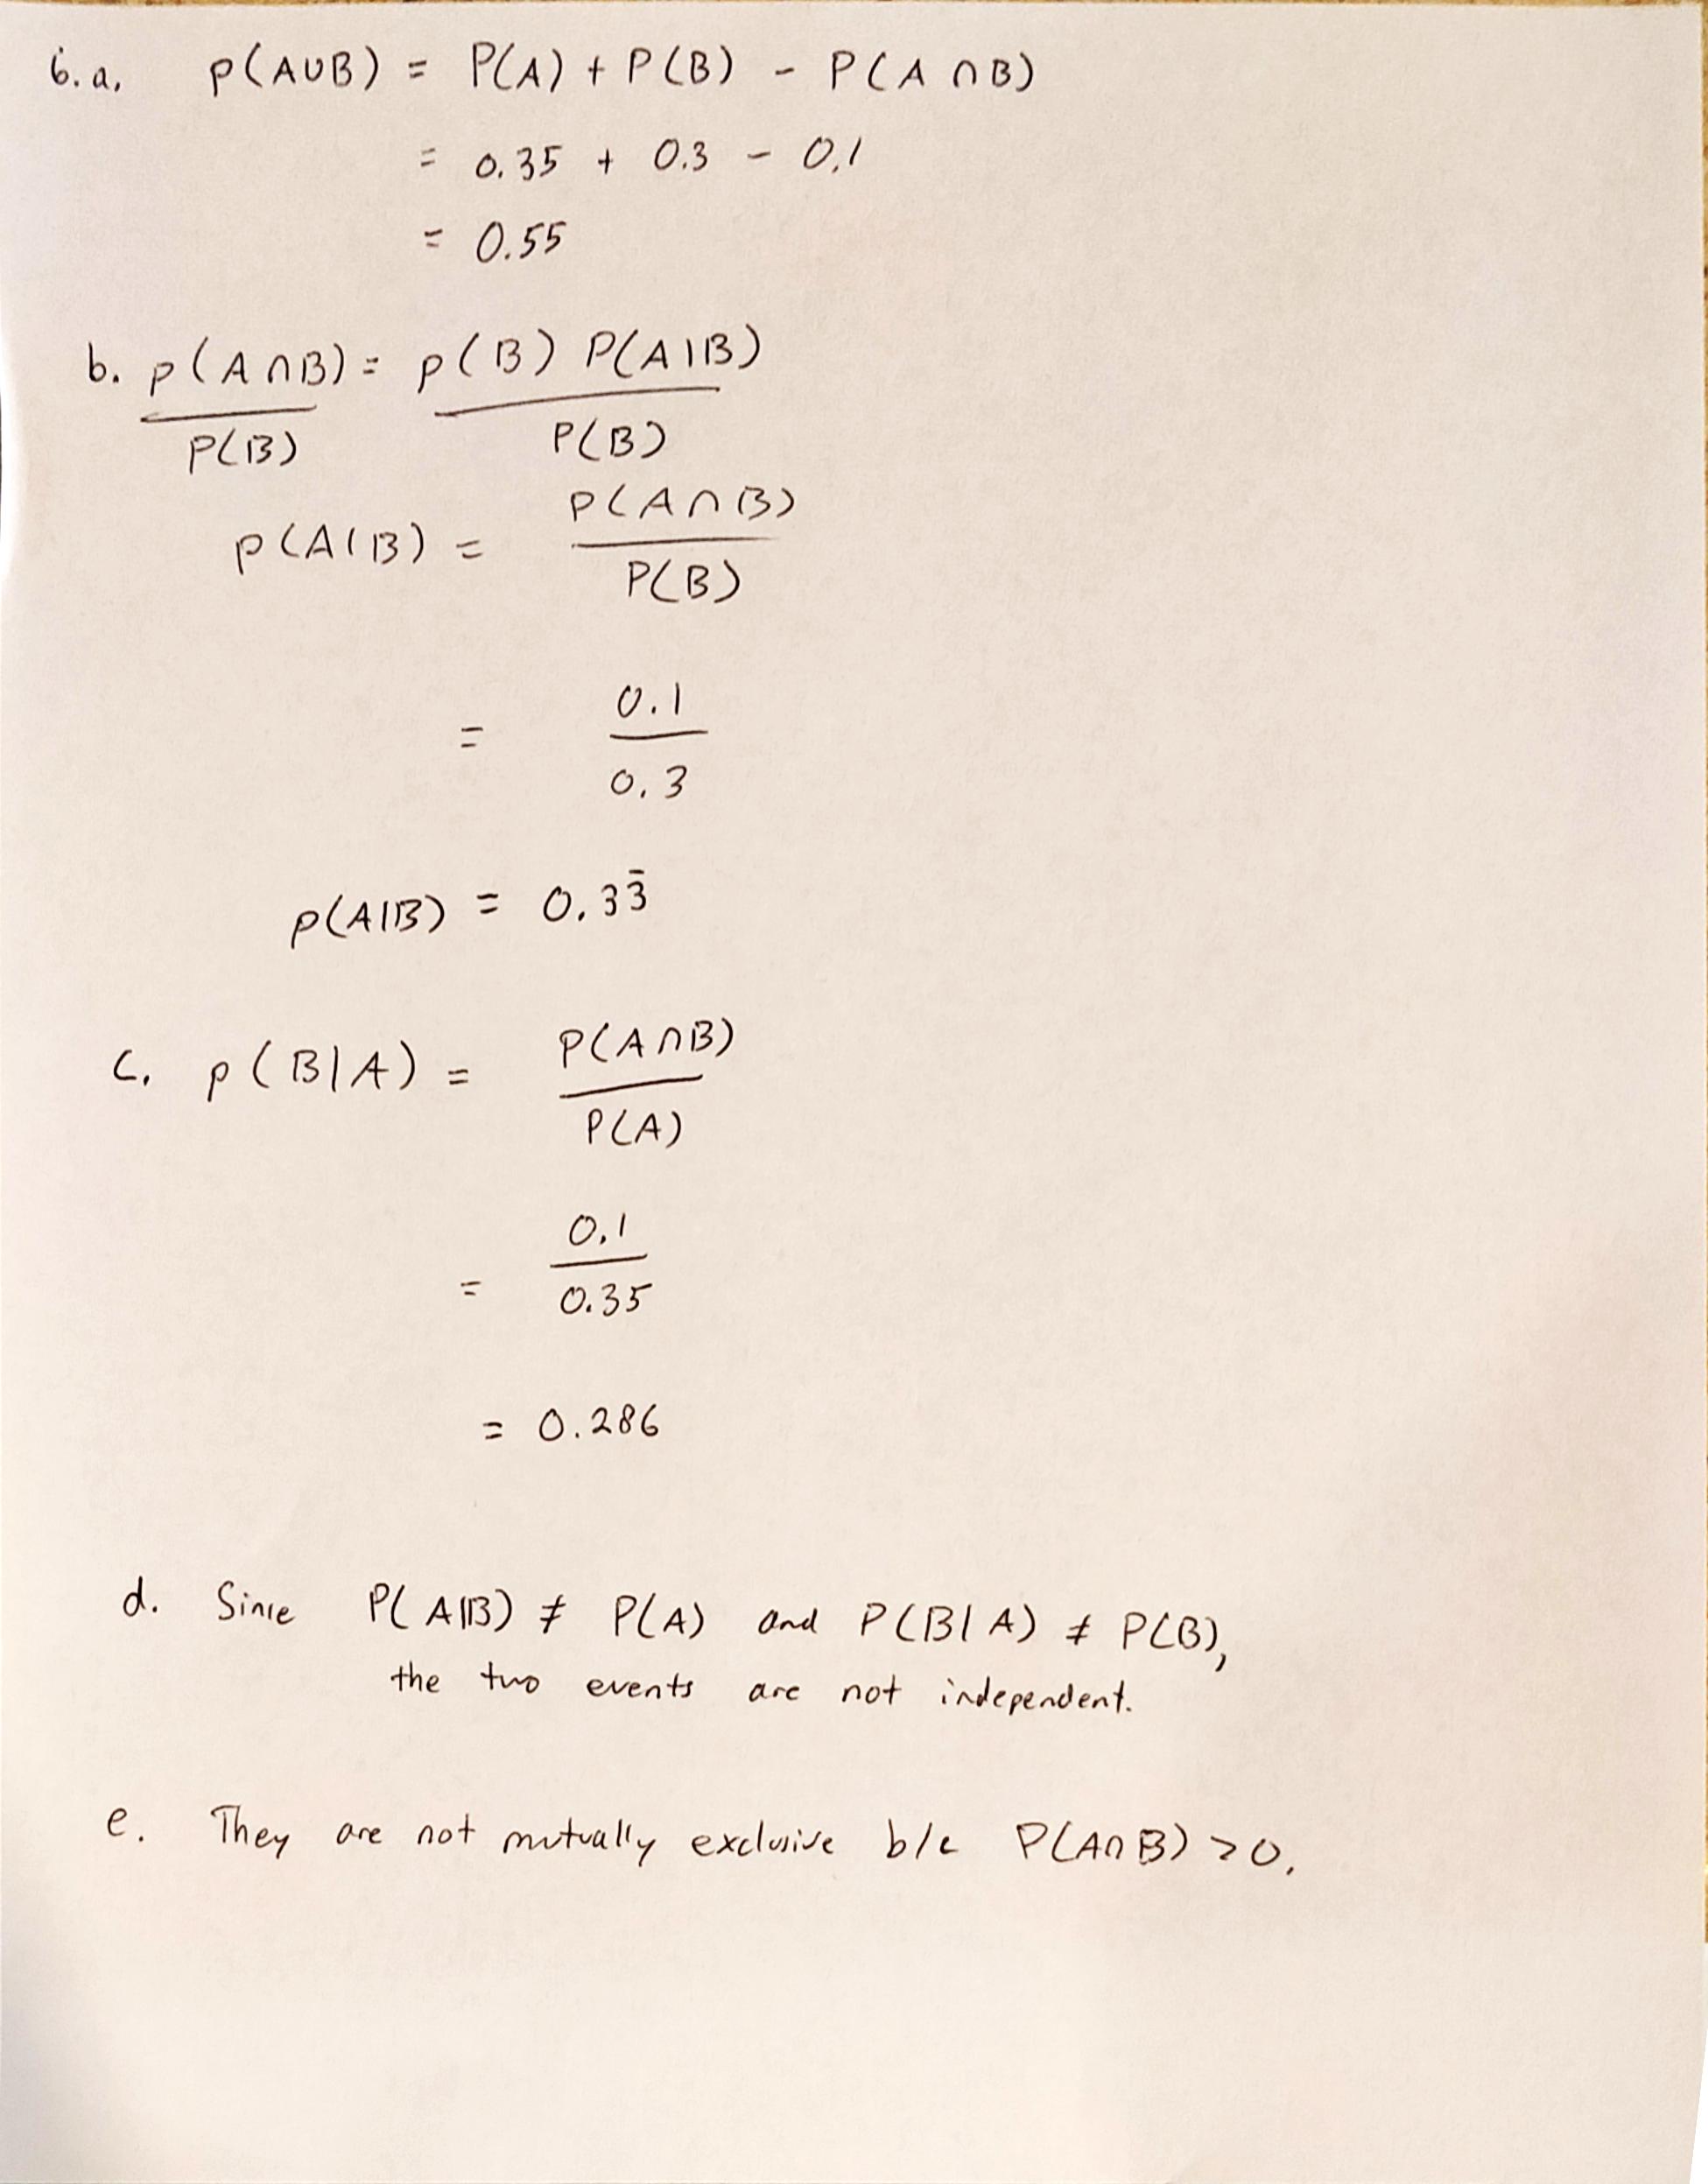 6.a. P(A∪B) = P(A) + P(B) - P(A ∩ B)
= 0.35 + 0.3 - 0.1
= 0.55
b. P(A ∩ B) = P(B) P(A|B)
P(B) P(B)
P(A|B) = P(A ∩ B)
P(B)
= 0.1
0.3
P(A|B) = 0.33̄
c. P(B|A) = P(A ∩ B)
P(A)
= 0.1
0.35
= 0.286
d. Since P(A|B) ≠ P(A) and P(B|A) ≠ P(B),
the two events are not independent.
e. They are not mutually exclusive b/c P(A∩B) > 0.